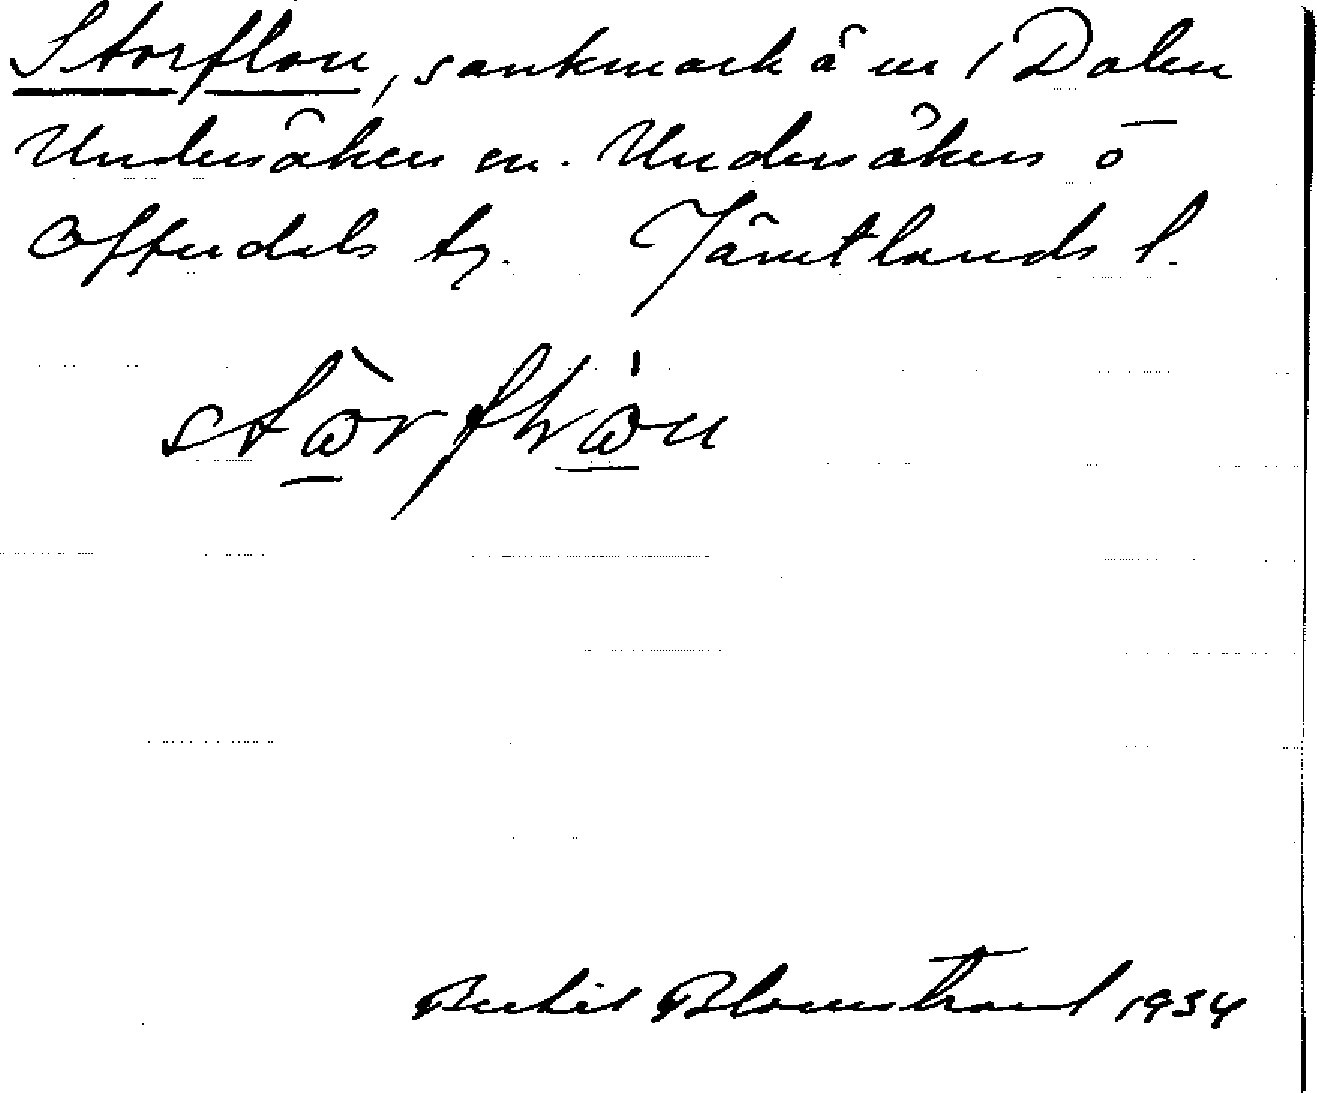 Storflon, sankmark å nr 1 Dalen
Undersåkers sn. Undersåkers o
Offerdals tg. Jämtlands l.
Bertil Blomstrand 1934